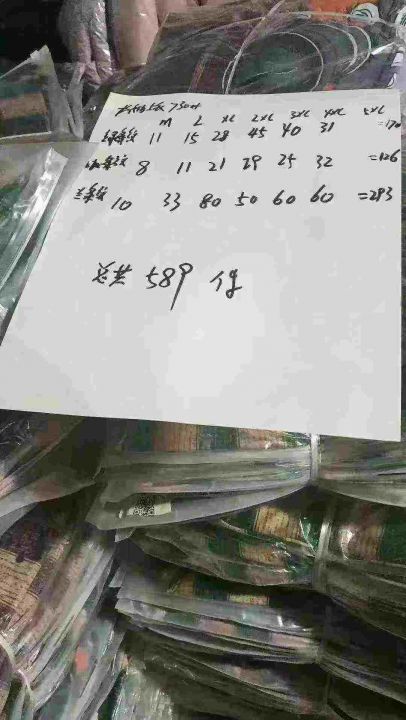 730#
M L XL 2XL 3XL 4XL 5XL
绿条纹 11 15 28 45 40 31 =170
条纹 8 11 21 29 25 32 =126
兰条纹 10 33 80 50 60 60 =293
总共 589 件